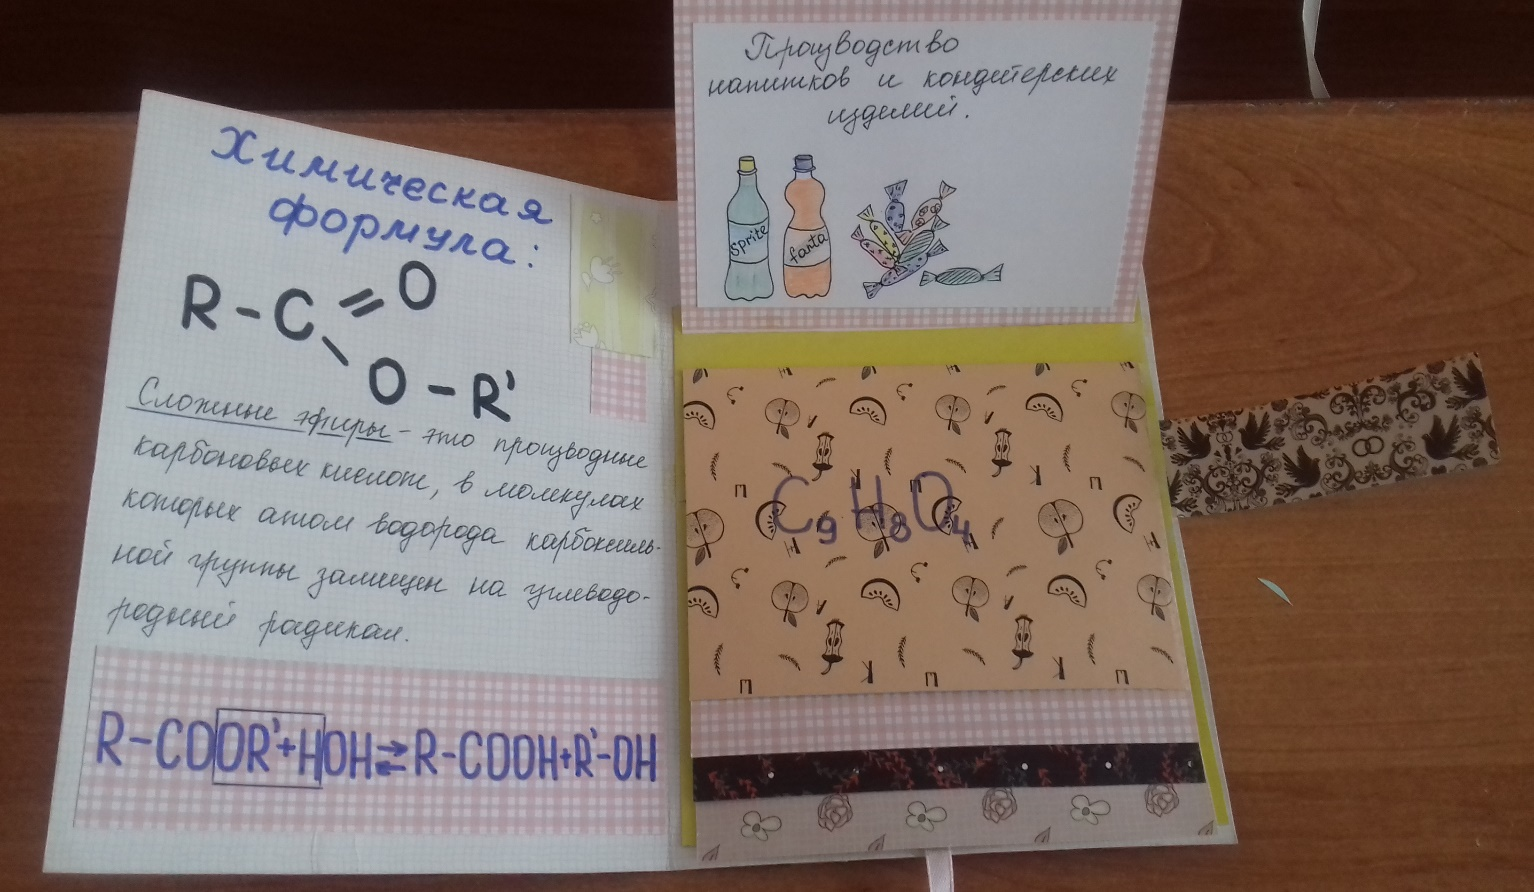 Химическая
формула:
R-C=O
O-R'
Сложные эфиры - это производные
карбоновых кислот, в молекулах
которых атом водорода карбоксиль-
ной группы замещен на углеводо-
родный радикал.
R-COOR'+HOH⇄R-COOH+R'-OH
Производство
напитков и кондитерских
изделий.
Sprite
fanta
C₉H₈O₄